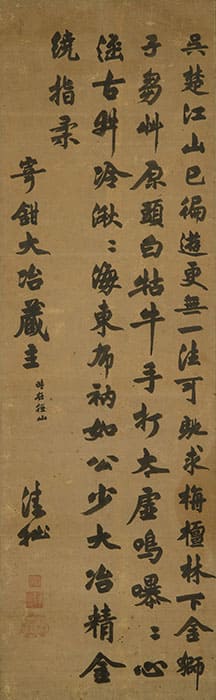 吳楚江山已徧遊更無一法可馳求栴檀林下金獅
子芻艸原頭白牯牛手打太虛鳴嚗〻心
涵古井冷湫〻海東布衲如公少大冶精金
繞指柔
寄鉗大冶藏主
時在徑山
清